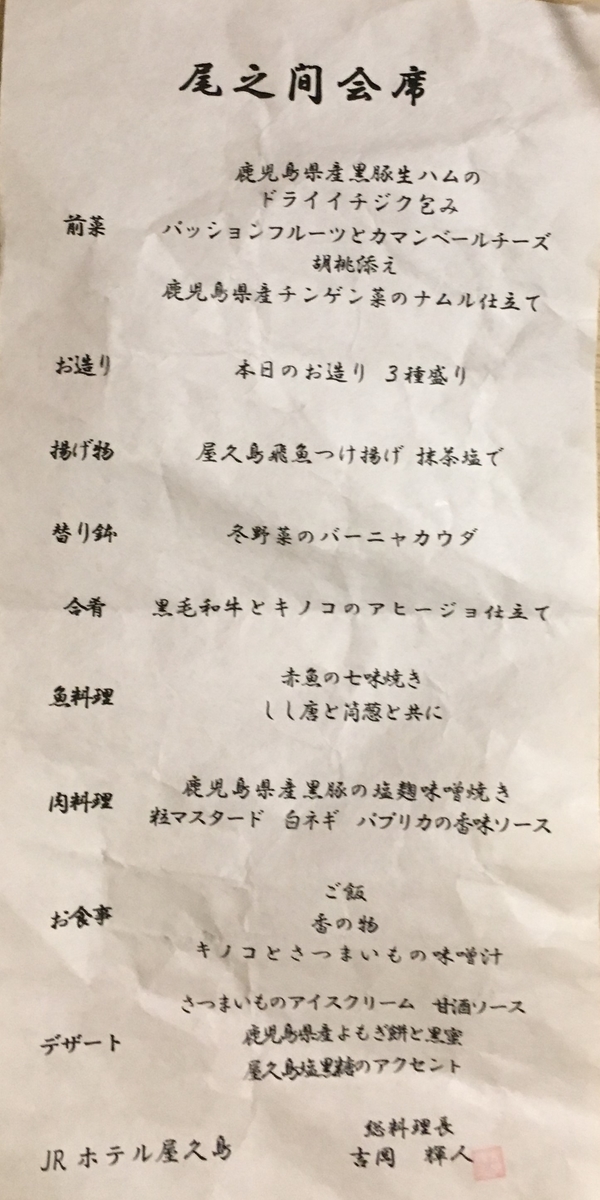 尾之間会席
前菜
鹿児島県産黒豚生ハムの
ドライイチジク包み
パッションフルーツとカマンベールチーズ
胡桃添え
鹿児島県産チンゲン菜のナムル仕立て
お造り 本日のお造り 3種盛り
揚げ物 屋久島飛魚つけ揚げ 抹茶塩で
替り鉢 冬野菜のバーニャカウダ
合肴 黒毛和牛とキノコのアヒージョ仕立て
魚料理
赤魚の七味焼き
しし唐と筒葱と共に
肉料理
鹿児島県産黒豚の塩麹味噌焼き
粒マスタード 白ネギ パプリカの香味ソース
お食事
ご飯
香の物
キノコとさつまいもの味噌汁
デザート
さつまいものアイスクリーム 甘酒ソース
鹿児島県産よもぎ餅と黒蜜
屋久島塩黒糖のアクセント
JR ホテル屋久島
総料理長
吉岡 輝人